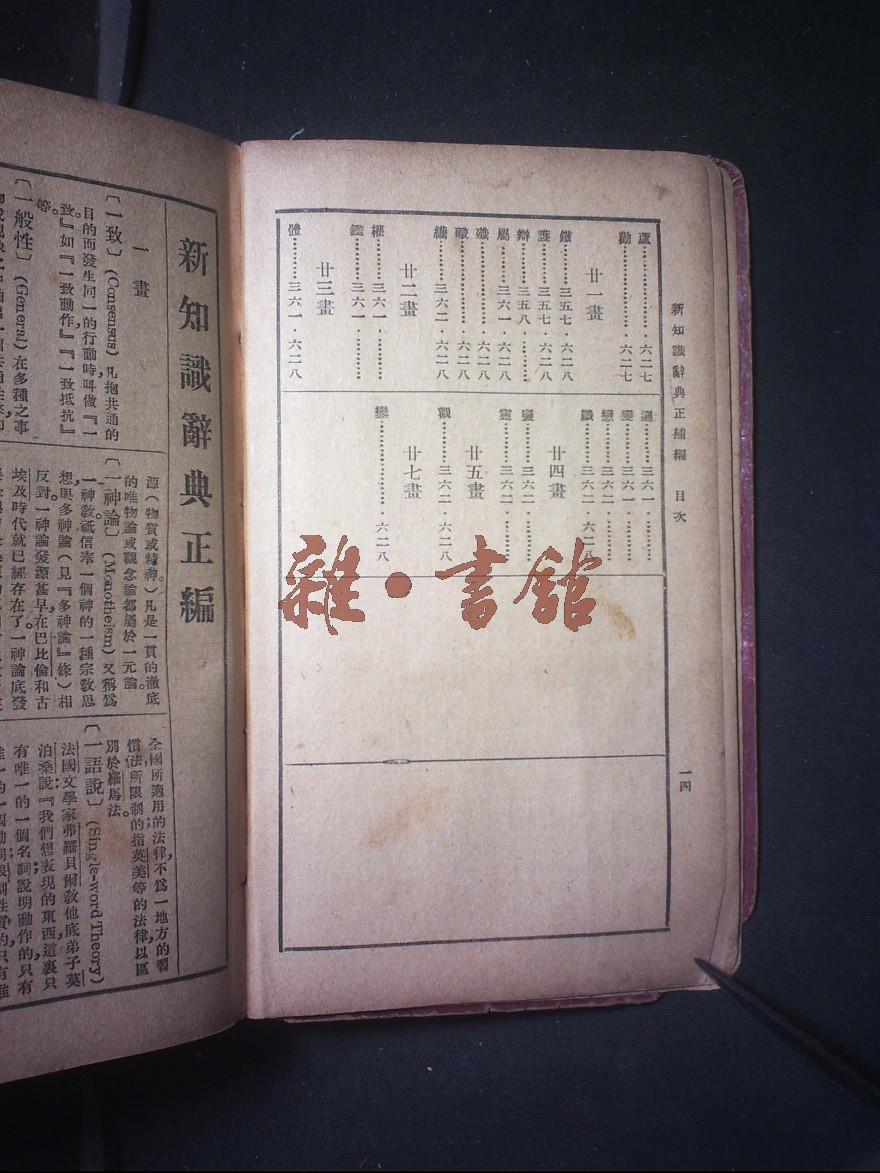 新知識辭典正補編 目次
一四
蘆…………六二七
勸…………六二七
廿一畫
鐵……三五七．六二八
護……三五七．六二八
辯……三五八．………
屬……三六一．六二八
殲…………六二八
礮…………六二八
續……三六二．六二八
廿二畫
權……三六一．………
鑑……三六一．………
廿三畫
體……三六一．六二八
邏……三六一．………
變……三六一．………
戀……三六二．………
讖……三六二．六二八
廿四畫
鹽……三六二．………
靈……三六二．………
廿五畫
觀……三六二．六二八
廿七畫
雜・書館
新知識辭典正編
一畫
〔一致〕(Consensus) 凡抱共通的
目的而發生同一的行動時叫做『一
致。』如『一致動作』『一致抵抗』
等。
〔一般性〕(General) 在多種之事
源(物質或精神)凡是一貫的澈底
的唯物論或觀念論都屬於一元論。
〔一神論〕(Monotheism) 又稱爲
一神敎祇信奉一個神的一種宗敎思
想與多神論(見『多神論』條)相
反對一神論發源甚早在巴比倫和古
埃及時代就已經存在了。一神論底發
全國所適用的法律不爲一地方的習
慣法所限制的指英美等的法律以區
別於羅馬法。
〔一語說〕(Single-word Theory)
法國文學家弗羅貝爾敎他底弟子莫
泊桑說『我們想表現的東西這裏只
有唯一的一個名詞說明動作的只有